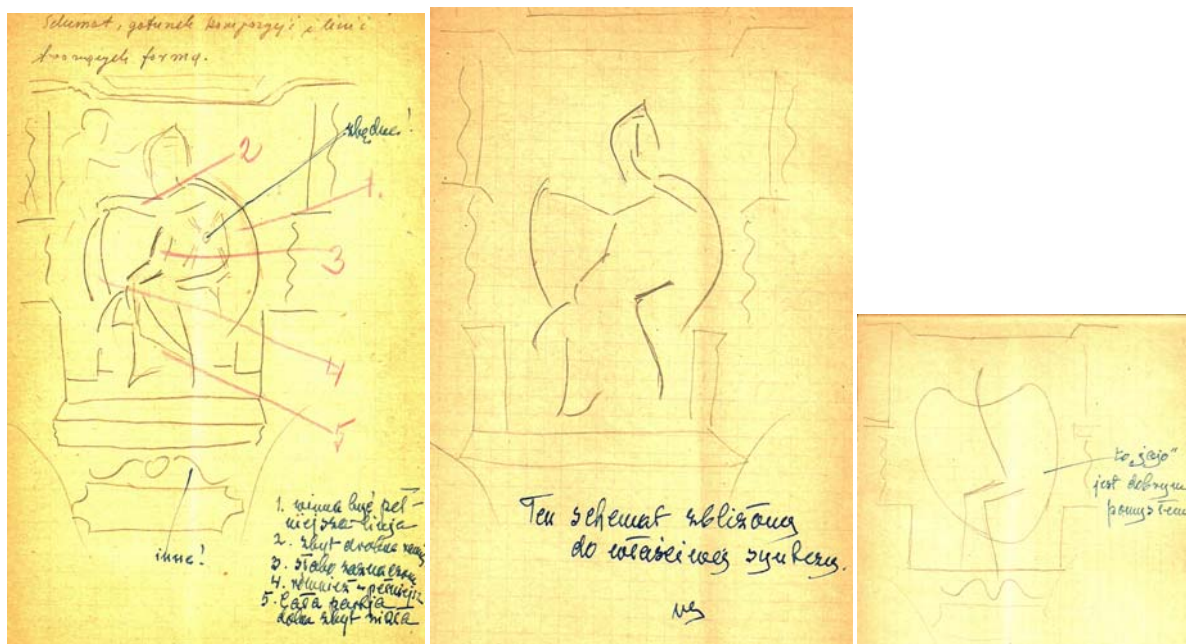 Schemat, gatunek kompozycji i linii
tworzących formę.
zbędne!
2
1.
3
4
5
inne!
1. winna być peł-
niejsza linja
2. zbyt drobna
3. słabo zaznaczone
4. również pełniejsz
5. Cała partja
dolna zbyt
Ten schemat zbliżony
do właściwej syntezy.
to „jajo"
jest dobrym
pomysłem